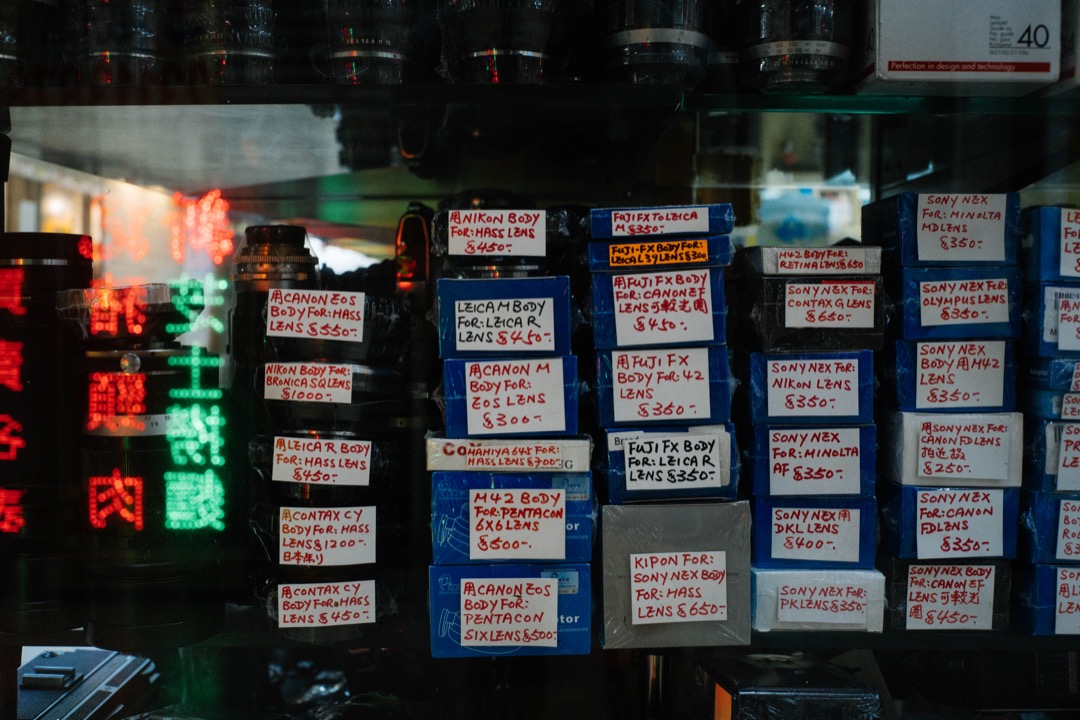 40
Perfection in design and technology
肉
芝士
用CANON EOS
BODY FOR: HASS
LENS $550-
NIKON BODY FOR:
BRONICA SQ LENS
$1000-
用LEICA R BODY
FOR: HASS LENS
$450-
用CONTAX CY
BODY FOR: HASS
LENS $1200-
日本制
用CONTAX CY
BODY FOR: HASS
LENS $450-
用NIKON BODY
FOR: HASS LENS
$450-
LEICA M BODY
FOR: LEICA R
LENS $450-
用CANON M
BODY FOR:
EOS LENS
$300-
MAMIYA 645 FOR:
HASS LENS $700-
M42 BODY
FOR: PENTACON
6X6 LENS
$500-
用CANON EOS
BODY FOR:
PENTACON
SIX LENS $500-
FUJI FX TO LEICA
M $350-
FUJI-FX BODY FOR:
LEICA L39 LENS $300
用FUJI FX BODY
FOR: CANON EF
LENS 可較光圈
$450-
用FUJI FX
BODY FOR: 42
LENS
$350-
FUJI FX BODY
FOR: LEICA R
LENS $350-
KIPON FOR:
SONY NEX BODY
FOR: HASS
LENS $650-
M42 BODY FOR:
RETINA LENS $650
SONY NEX FOR:
CONTAX G LENS
$650-
SONY NEX FOR:
NIKON LENS
$350-
SONY NEX
FOR: MINOLTA
AF $350-
SONY NEX用
DKL LENS
$400-
SONY NEX FOR:
PK LENS $350-
SONY NEX
FOR: MINOLTA
MD LENS
$350-
SONY NEX FOR:
OLYMPUS LENS
$350-
SONY NEX
BODY 用 M42
LENS
$350-
用SONY NEX FOR:
CANON FD LENS
拍近拍
$250-
SONY NEX
FOR: CANON
FD LENS
$350-
SONY NEX
BODY FOR: CANON EF
LENS 可較光
圈 $450-